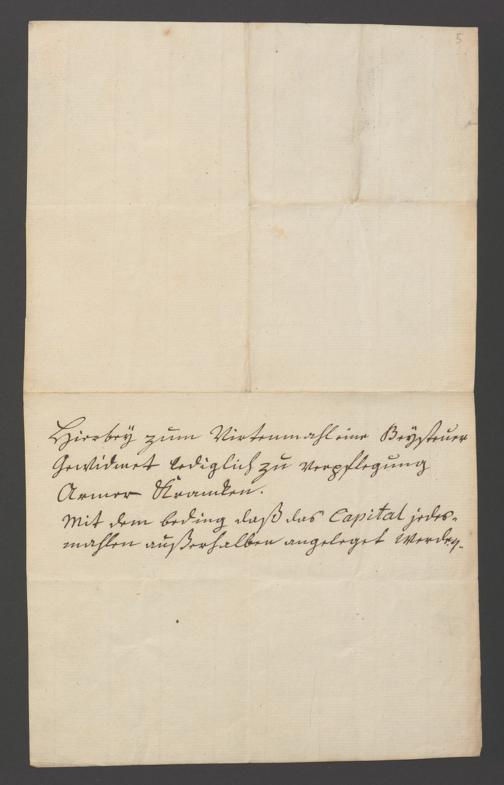 5
Hierbeÿ zum Viertenmahl eine Beÿsteuer
Gewidmet lediglich zu verpflegung
Armer Krancken.
Mit dem beding daß das Capital jedes-
mahlen außerhalben angeleget werden.